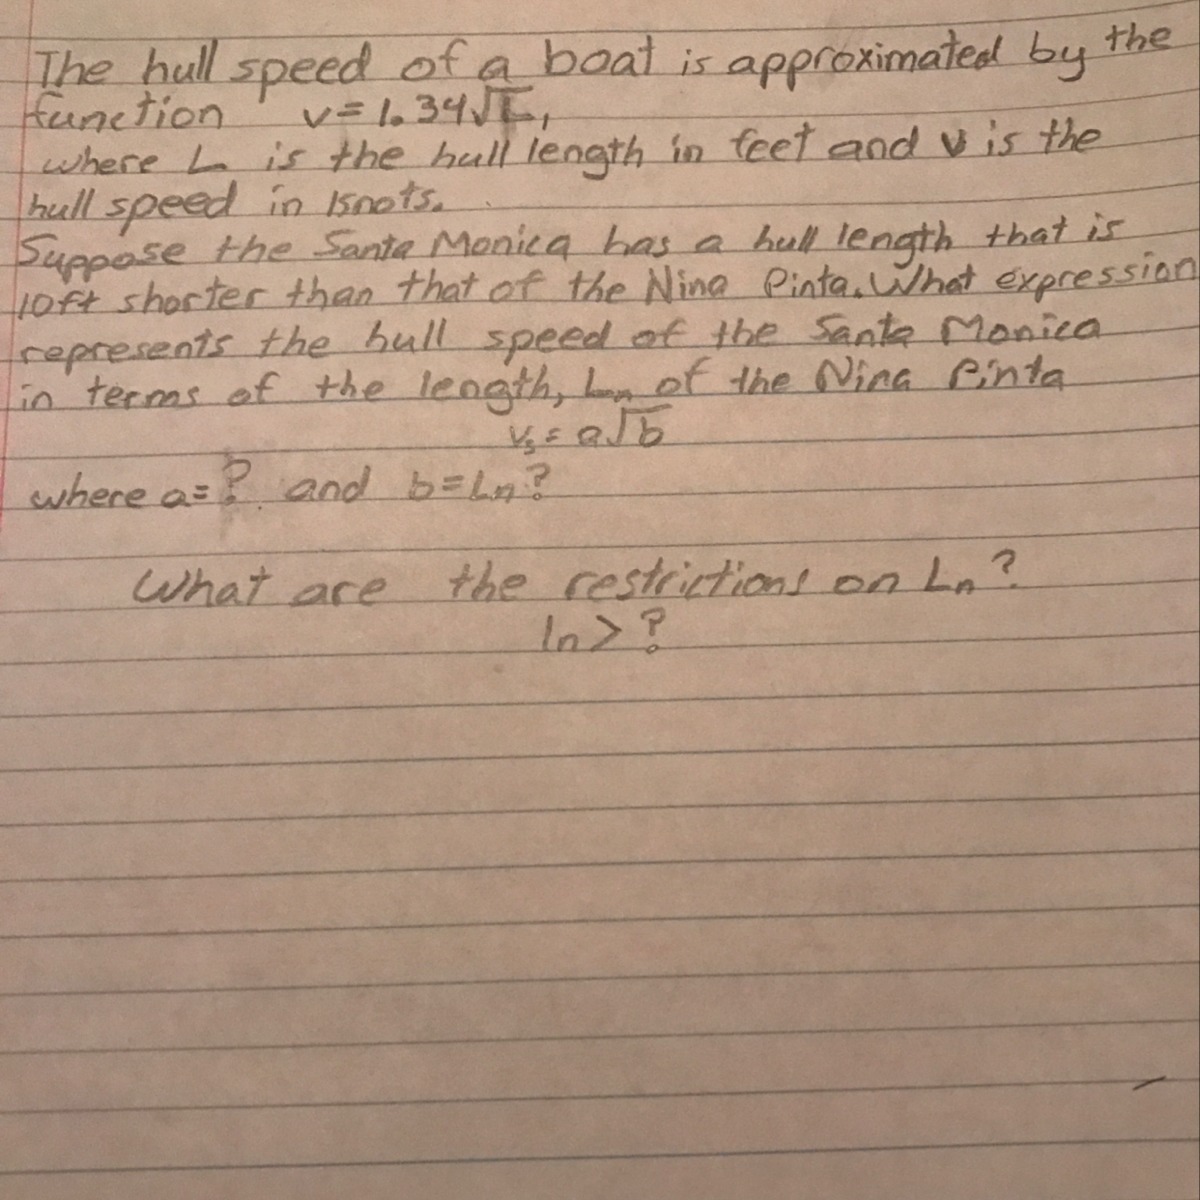 The hull speed of a boat is approximated by the
function v=1.34√L,
where L is the hull length in feet and v is the
hull speed in knots.
Suppose the Santa Monica has a hull length that is
10ft shorter than that of the Nina Pinta. What expression
represents the hull speed of the Santa Monica
in terms of the length, Ln of the Nina Pinta
vs = a√b
where a=? and b=Ln?
What are the restrictions on Ln?
ln>?